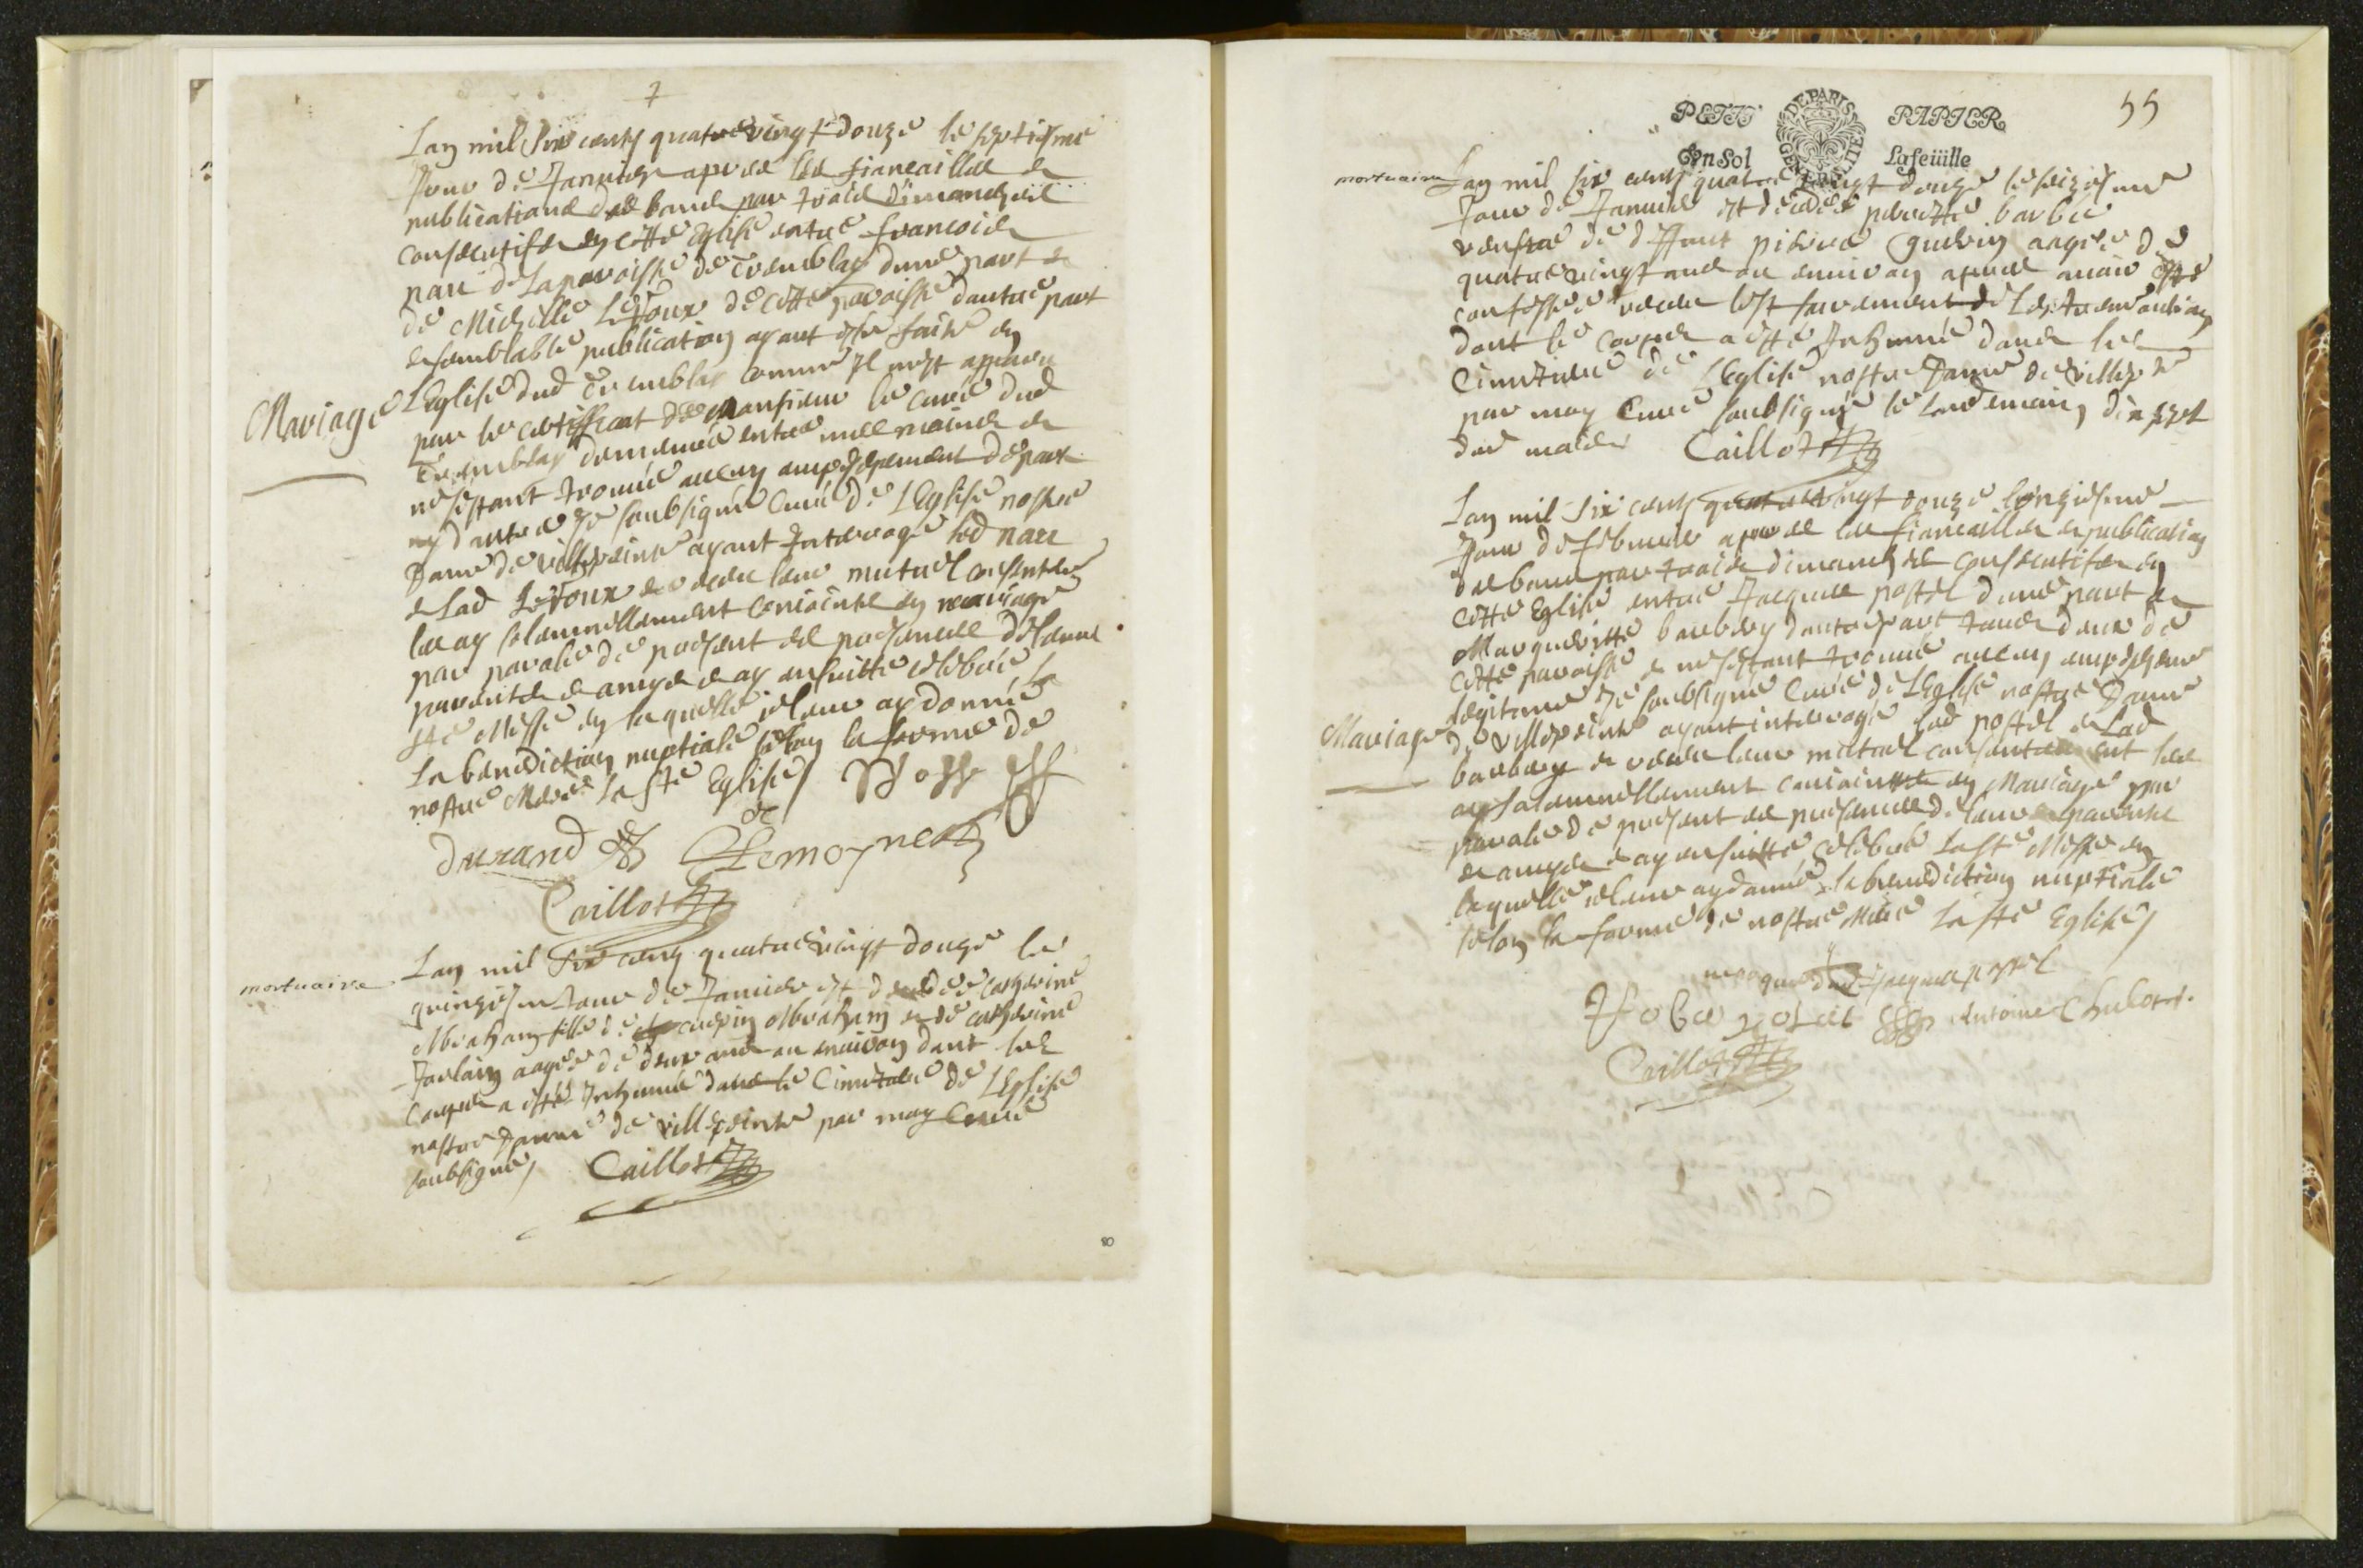 7
Lan mil Six cents quatre vingt douze le septiesme
Jour de Januier apres les fiancailles et
publications des bans par trois dimanches
consecutifs en cette Eglise entre francois
nau de La paroisse de Tremblay dune part et
de Michelle Ledoux de cette paroisse dautre part
et semblable publication ayant esté faite en
Mariage
LEglise dud Tremblay comme Il mest apparu
par le certifficat de Monsieur le curé dud
Tremblay demeuré entre mes mains et
ne sestant trouué aucun empeschement de part
ny dautre Je soubsigné Curé de LEglise nostre
Dame de villepeinte ayant Interrogé led nau
et lad Ledoux et receu leur mutuel consentem
les ay solemnellement conioints en mariage
par parole de present es presences de leurs
parents et amys et ay ensuitte celebré la
ste Messe en laquelle ie leur ay donné
la benediction nuptiale selon la forme de
nostre Mere la Ste Eglise
durand Lemoyne
Caillot
mortuaire
Lan mil Six cens quatre vingt douze le
quinziesme Jour de Januier est decedée catherine
Abraham fille de crespin Abraham et de catherine
aagée de deux ans ou enuiron dont le
corps a esté Inhumé dans le Cimetiere de LEglise
nostre Dame de villepeinte par moy Curé
soubsigné Caillot
80
55
PETIT PAPIER
GEN DE PARIS
Un Sol La feüille
mortuaire
Lan mil six cents quatre vingt douze le seiziesme
Jour de Januier est decedée perrette barbé
veufue de deffunt pierre Guerin aagée de
quatre vingt ans ou enuiron apres auoir esté
confessée receu lest sacrement de Lextreme onction
dont le corps a esté Inhumé dans le
Cimetiere de LEglise nostre Dame de villepte
par moy Curé soubsigné le lendemain dix sept
dud mois Caillot
Lan mil Six cents quatre vingt douze lonziesme
Jour de feburier apres les fiancailles et publication
des bans par trois dimanches consecutifs en
cette Eglise entre Jacques postel dune part et
Marguerite barbery dautre part tous deux de
cette paroisse et ne sestant trouué aucun empeschem
legitime Je soubsigné Curé de LEglise nostre Dame
Mariage
de villepeinte ayant interrogé led postel et Lad
barbery et receu leur mutuel consentement les
ay solemnellement conioints en Mariage par
parole de present es presences de leurs parents
et amys et ay ensuitte celebré la ste Messe en
laquelle ie leur ay donné la benediction nuptiale
selon la forme de nostre Mere la ste Eglise
marque dud Jacques postel
Antoine
Caillot